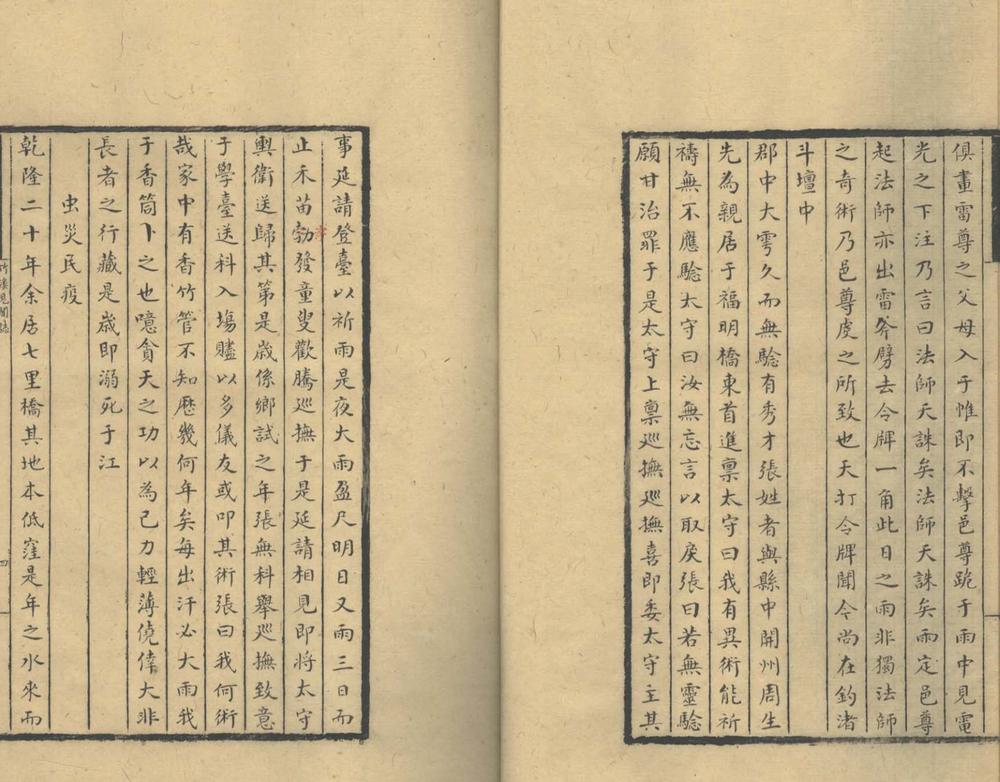 俱畫雷尊之父母入于帷即不擊邑尊跪于雨中見電
光之下注乃言曰法師天誅矣法師天誅矣雨定邑尊
起法師亦出雷斧劈去令牌一角此日之雨非獨法師
之奇術乃邑尊虔之所致也天打令牌聞今尚在鈞渚
斗壇中
郡中大雩久而無驗有秀才張姓者與縣中開州周生
先為親居于福明橋東首進稟太守曰我有異術能祈
禱無不應驗太守曰汝無忘言以取戾張曰若無靈驗
願甘治罪于是太守上稟巡撫巡撫喜即委太守主其
事延請登臺以祈雨是夜大雨盈尺明日又雨三日而
止禾苗勃發童叟歡騰巡撫于是延請相見即將太守
輿衛送歸其第是歲係鄉試之年張無科舉巡撫致意
于學臺送科入塲贐以多儀友或叩其術張曰我何術
哉家中有香竹管不知歷幾何年矣每出汗必大雨我
于香筒卜之也噫貪天之功以為己力輕薄僥倖大非
長者之行藏是歲即溺死于江
虫災民疫
乾隆二十年余居七里橋其地本低窪是年之水來而